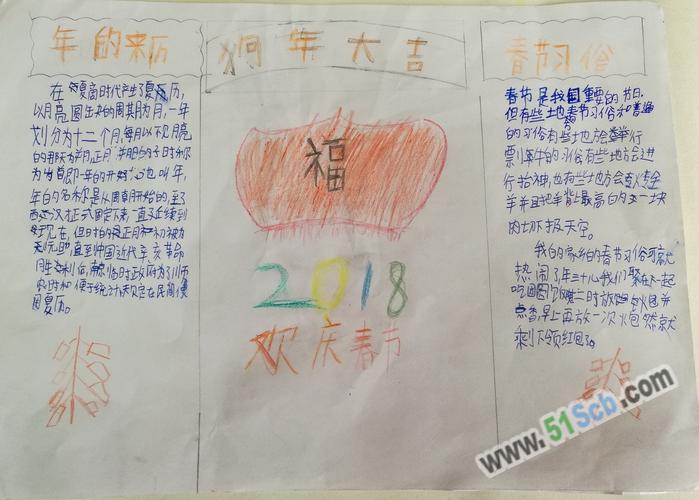 年的来历
在夏商时代产生了夏历,
以月亮圆缺的周期为月,一年
划分为十二个月,每月以不见月亮
的那天为朔,正月朔日的子时称
为岁首,即一年的开始,也叫年,
年的名称是从周朝开始的,至了
西汉才正式固定下来,一直延续到
了现在,但古时的正月初一被为
元旦直到中国近代辛亥革命
胜利后,南京临时政府为了
和便于统计,规定在民间使
用夏历。
狗年大吉
福
2018
欢庆春节
春节习俗
春节是我国重要的节日,
但有些地春节习俗和普通
的习俗有些地方会举行
的习俗有些地方会进
行抬神,也有些地方会烤全
羊并且把羊背上最高的一块
肉切
我的家乡的春节习俗可就
热闹了年三十儿我们聚在一起
吃团圆饭
点香早上再放一次火包然后就
剩下领红包了。
www.51Scb.com